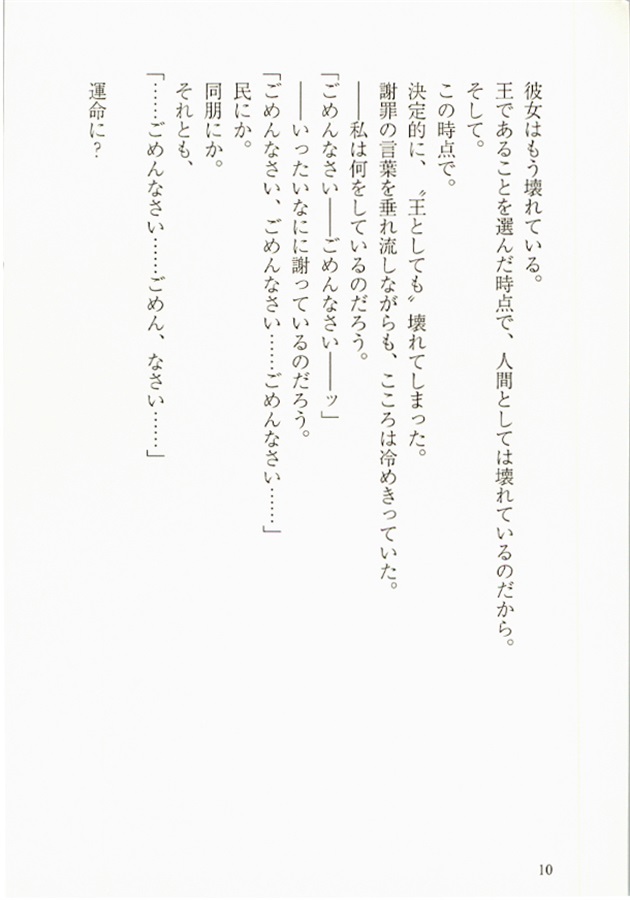 彼女はもう壊れている。
王であることを選んだ時点で、人間としては壊れているのだから。
そして。
この時点で。
決定的に、〝王としても〟壊れてしまった。
謝罪の言葉を垂れ流しながらも、こころは冷めきっていた。
――私は何をしているのだろう。
「ごめんなさい――ごめんなさい――ッ」
――いったいなにに謝っているのだろう。
「ごめんなさい、ごめんなさい……ごめんなさい……」
民にか。
同朋にか。
それとも、
「……ごめんなさい……ごめん、なさい……」
運命に？
10